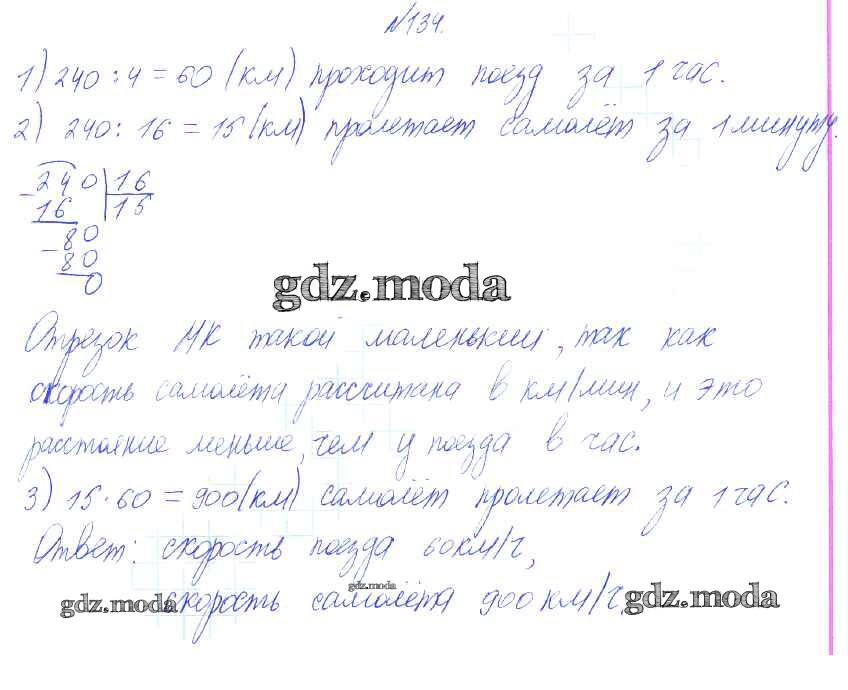 №134.
1) 240 : 4 = 60 (км) проходит поезд за 1 час.
2) 240 : 16 = 15 (км) пролетает самолёт за 1 минуту.
240 | 16
16 | 15
80
80
0
gdz.moda
Отрезок МК такой маленький, так как
скорость самолёта рассчитана в км/мин, и это
расстояние меньше, чем у поезда в час.
3) 15 · 60 = 900 (км) самолёт пролетает за 1 час.
Ответ: скорость поезда 60 км/ч,
gdz.moda
gdz.moda скорость самолёта 900 км/ч. gdz.moda